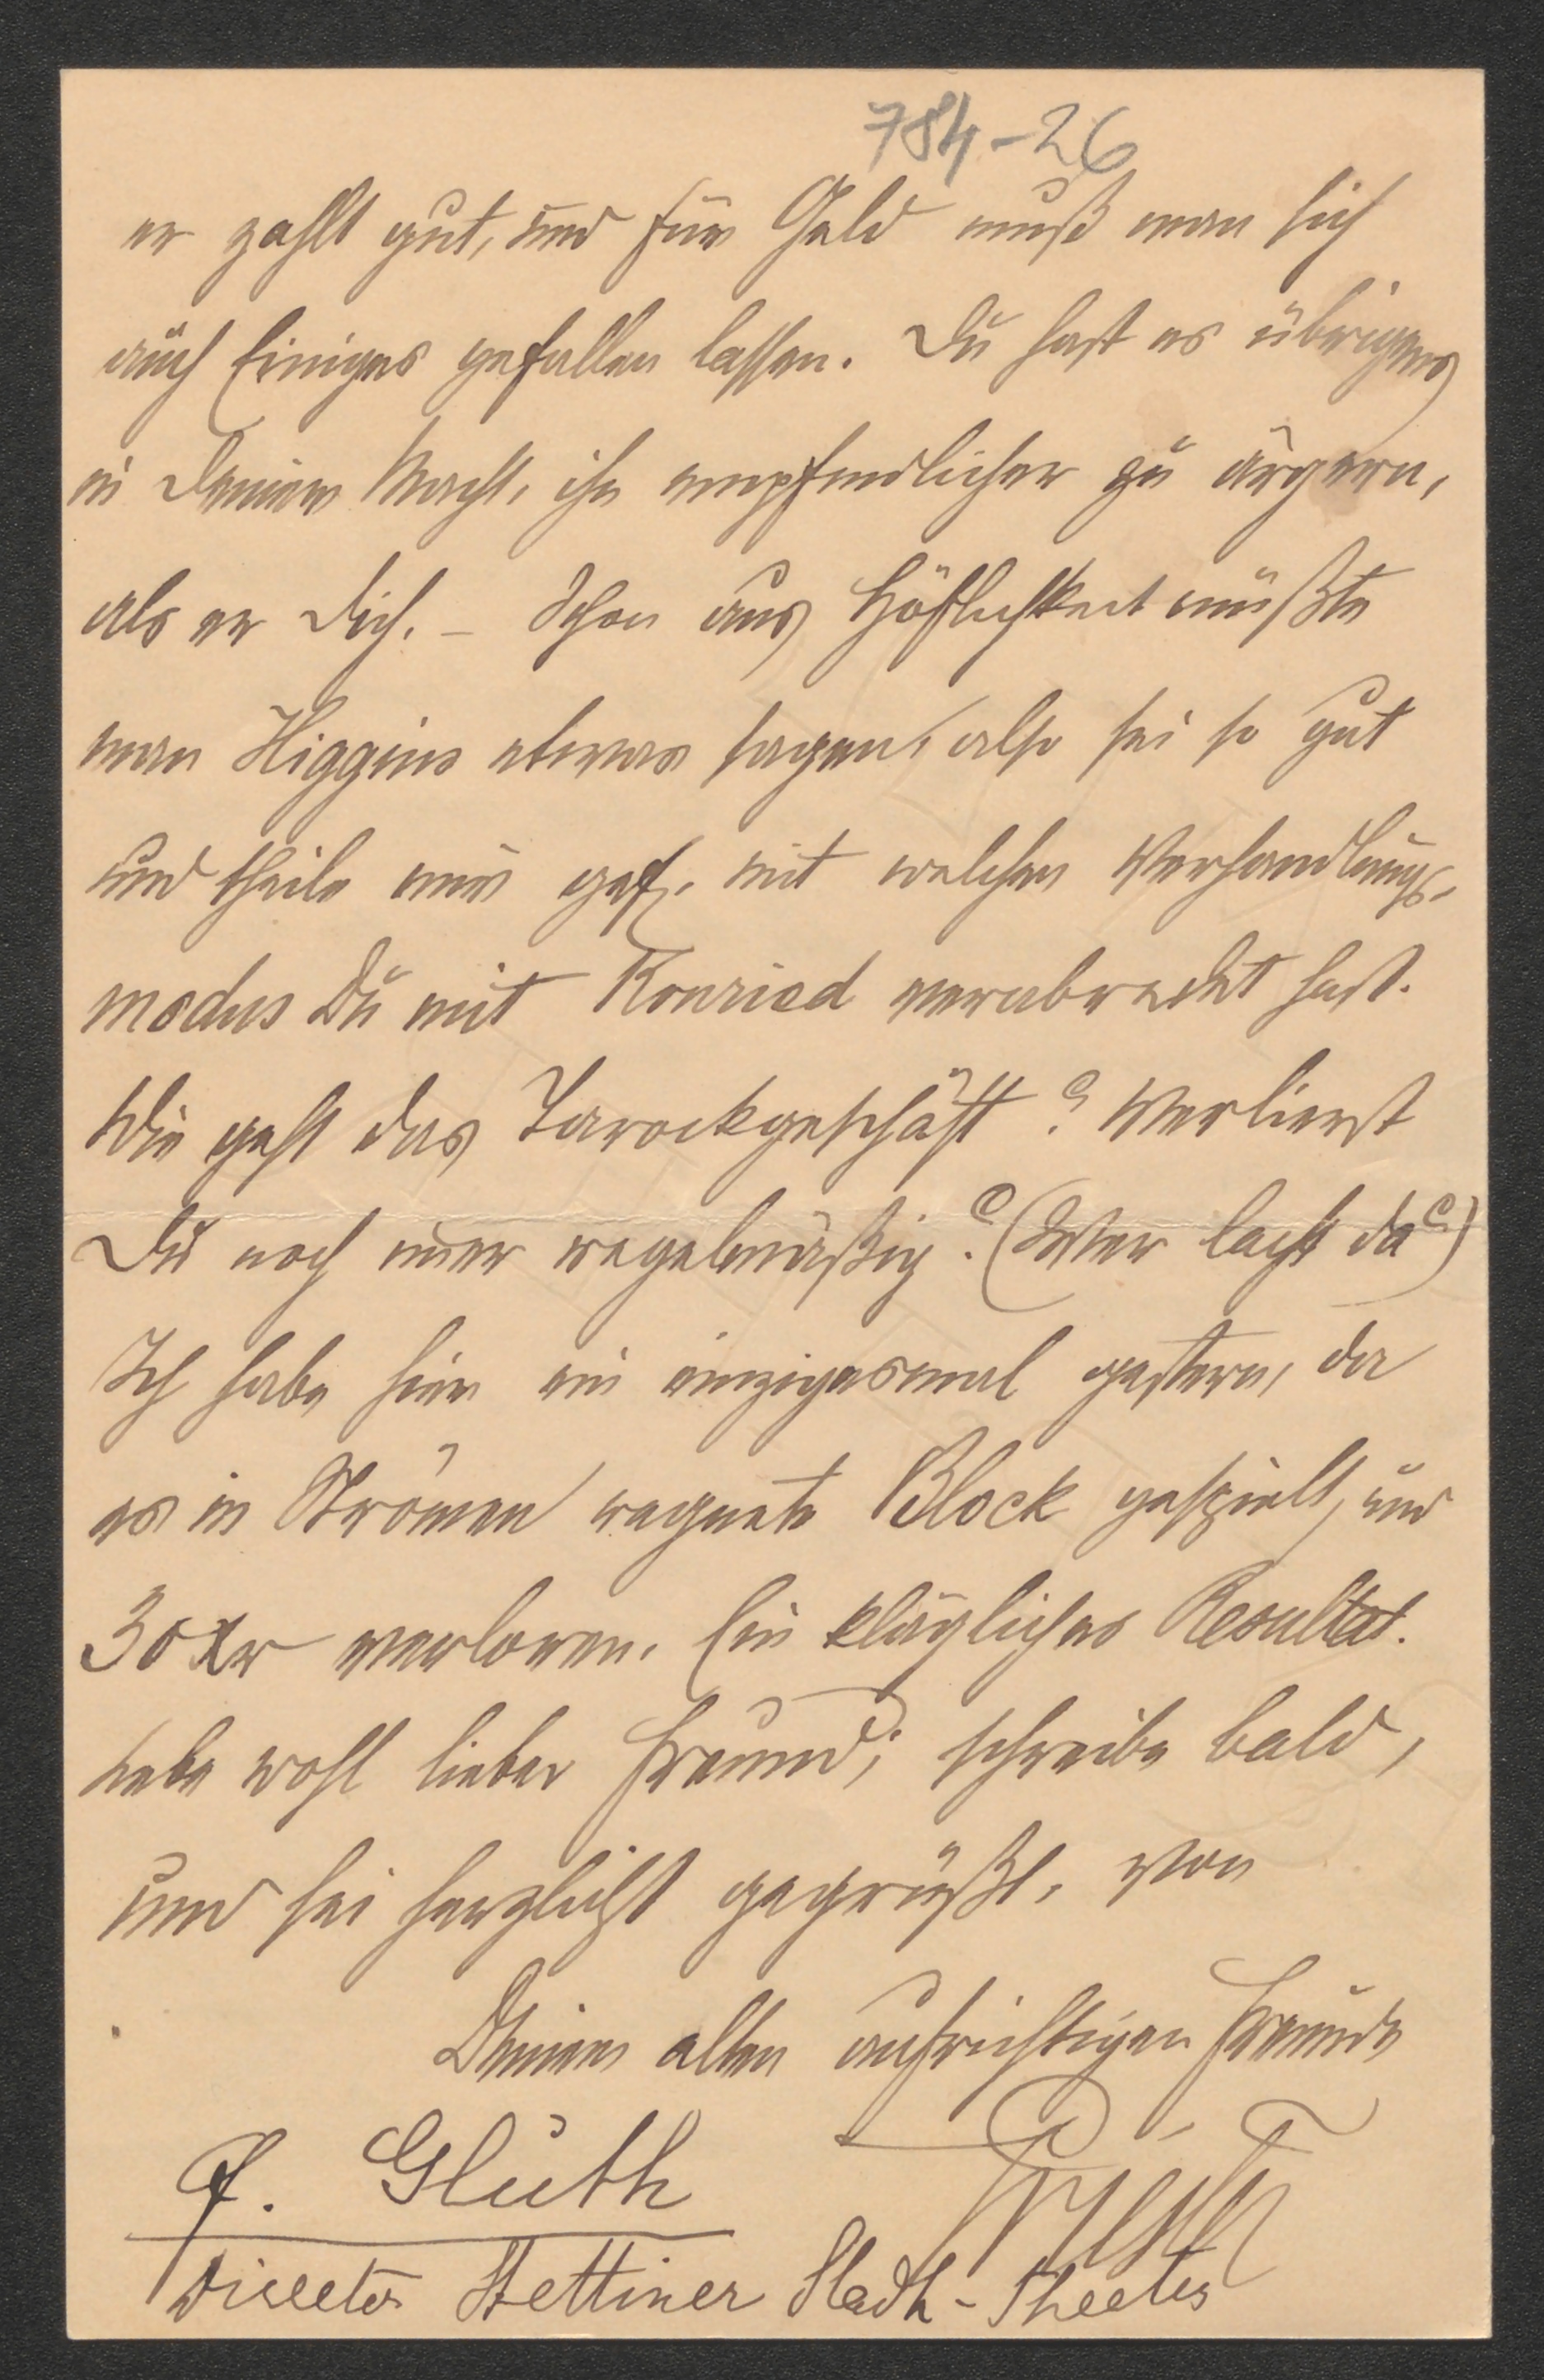 784-26
er zahlt gut, und für Geld muß man sich
auch Einiges gefallen lassen. Du hast es übrigens
in Deiner Macht, ihn empfindlicher zu ärgern,
als er Dich. – Schon aus Höflichkeit müßte
man Higgins etwas sagen, also sei so gut
und theile mir gef. mit welchen Verhandlungs-
modus Du mit Konried verabredet hast.
Wie geht das Tarockgeschäft? Verlierst
Du noch imer regelmäßig? (Wer lacht da?)
Ich habe hier ein einzigesmal gestern, da
es in Strömen regnete Block gespielt, und
30 xr verloren. Ein klägliches Resultat.
Lebe wohl lieber Freund; schreibe bald,
und sei herzlichst gegrüßt, von
Deinem alten aufrichtigen Freunde
Gluth
F. Gluth
Director Stettiner Stadt-Theater